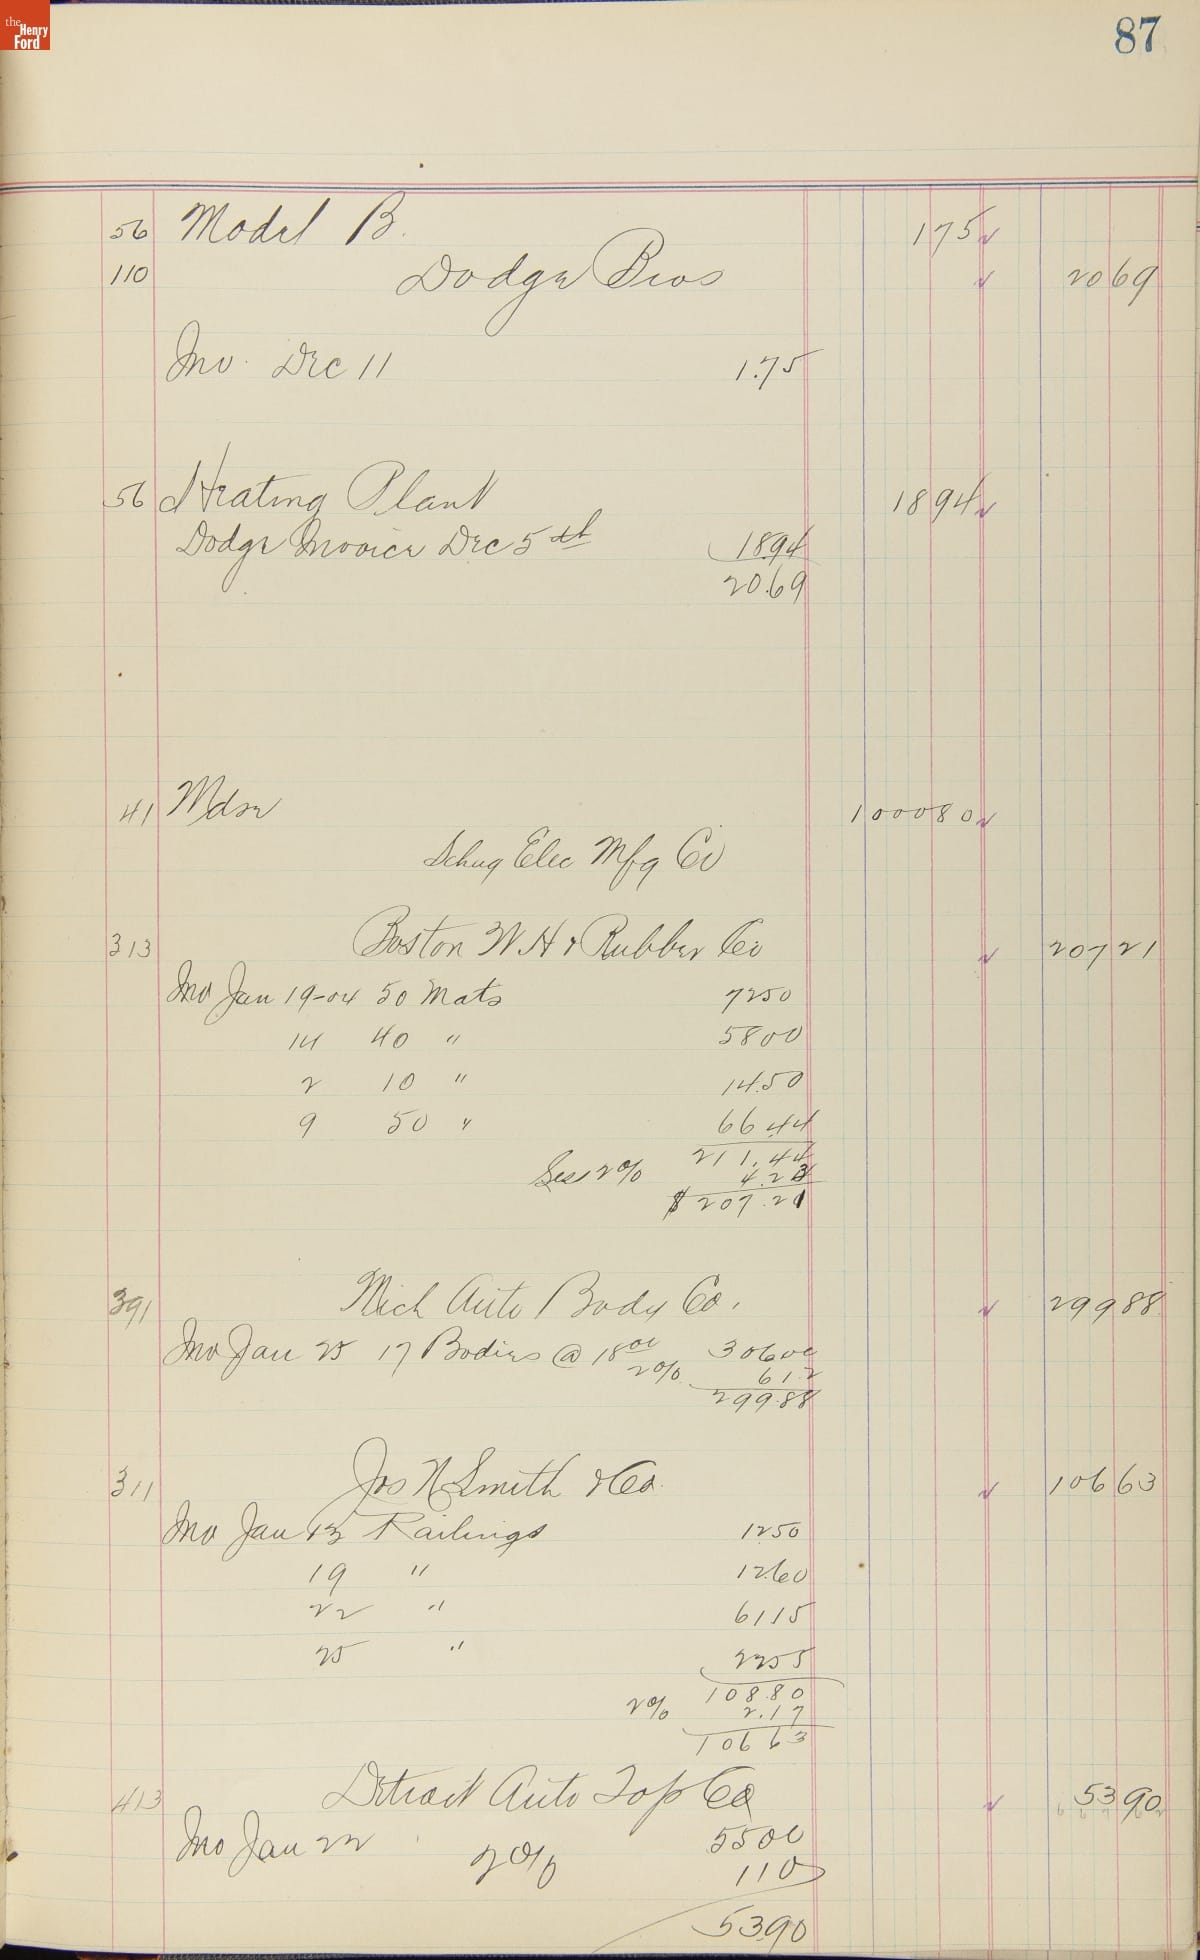 the Henry Ford
87
56 Model B. 175
110 Dodge Bros 2069
Inv. Dec 11 1.75
56 Heating Plant 1894
Dodge Invoice Dec 5th 18.94
20.69
41 Mdse 100080
Schug Elec Mfg Co
313 Boston W. H & Rubber Co 20721
Inv Jan 19-04 50 Mats 7250
14 40 " 5800
2 10 " 14.50
9 50 " 66.44
211.44
Less 2% 4.23
$207.21
391 Mich Auto Body Co. 29988
Inv Jan 25 17 Bodies @ 18 00 30600
2% 6 12
299.88
311 Jos N Smith & Co. 10663
Inv Jan 13 Railings 1250
19 " 12.60
22 " 6115
25 " 2255
108.80
2% 2.17
10663
413 Detroit Auto Top Co 5390
Inv Jan 22 5500
2% 110
53.90